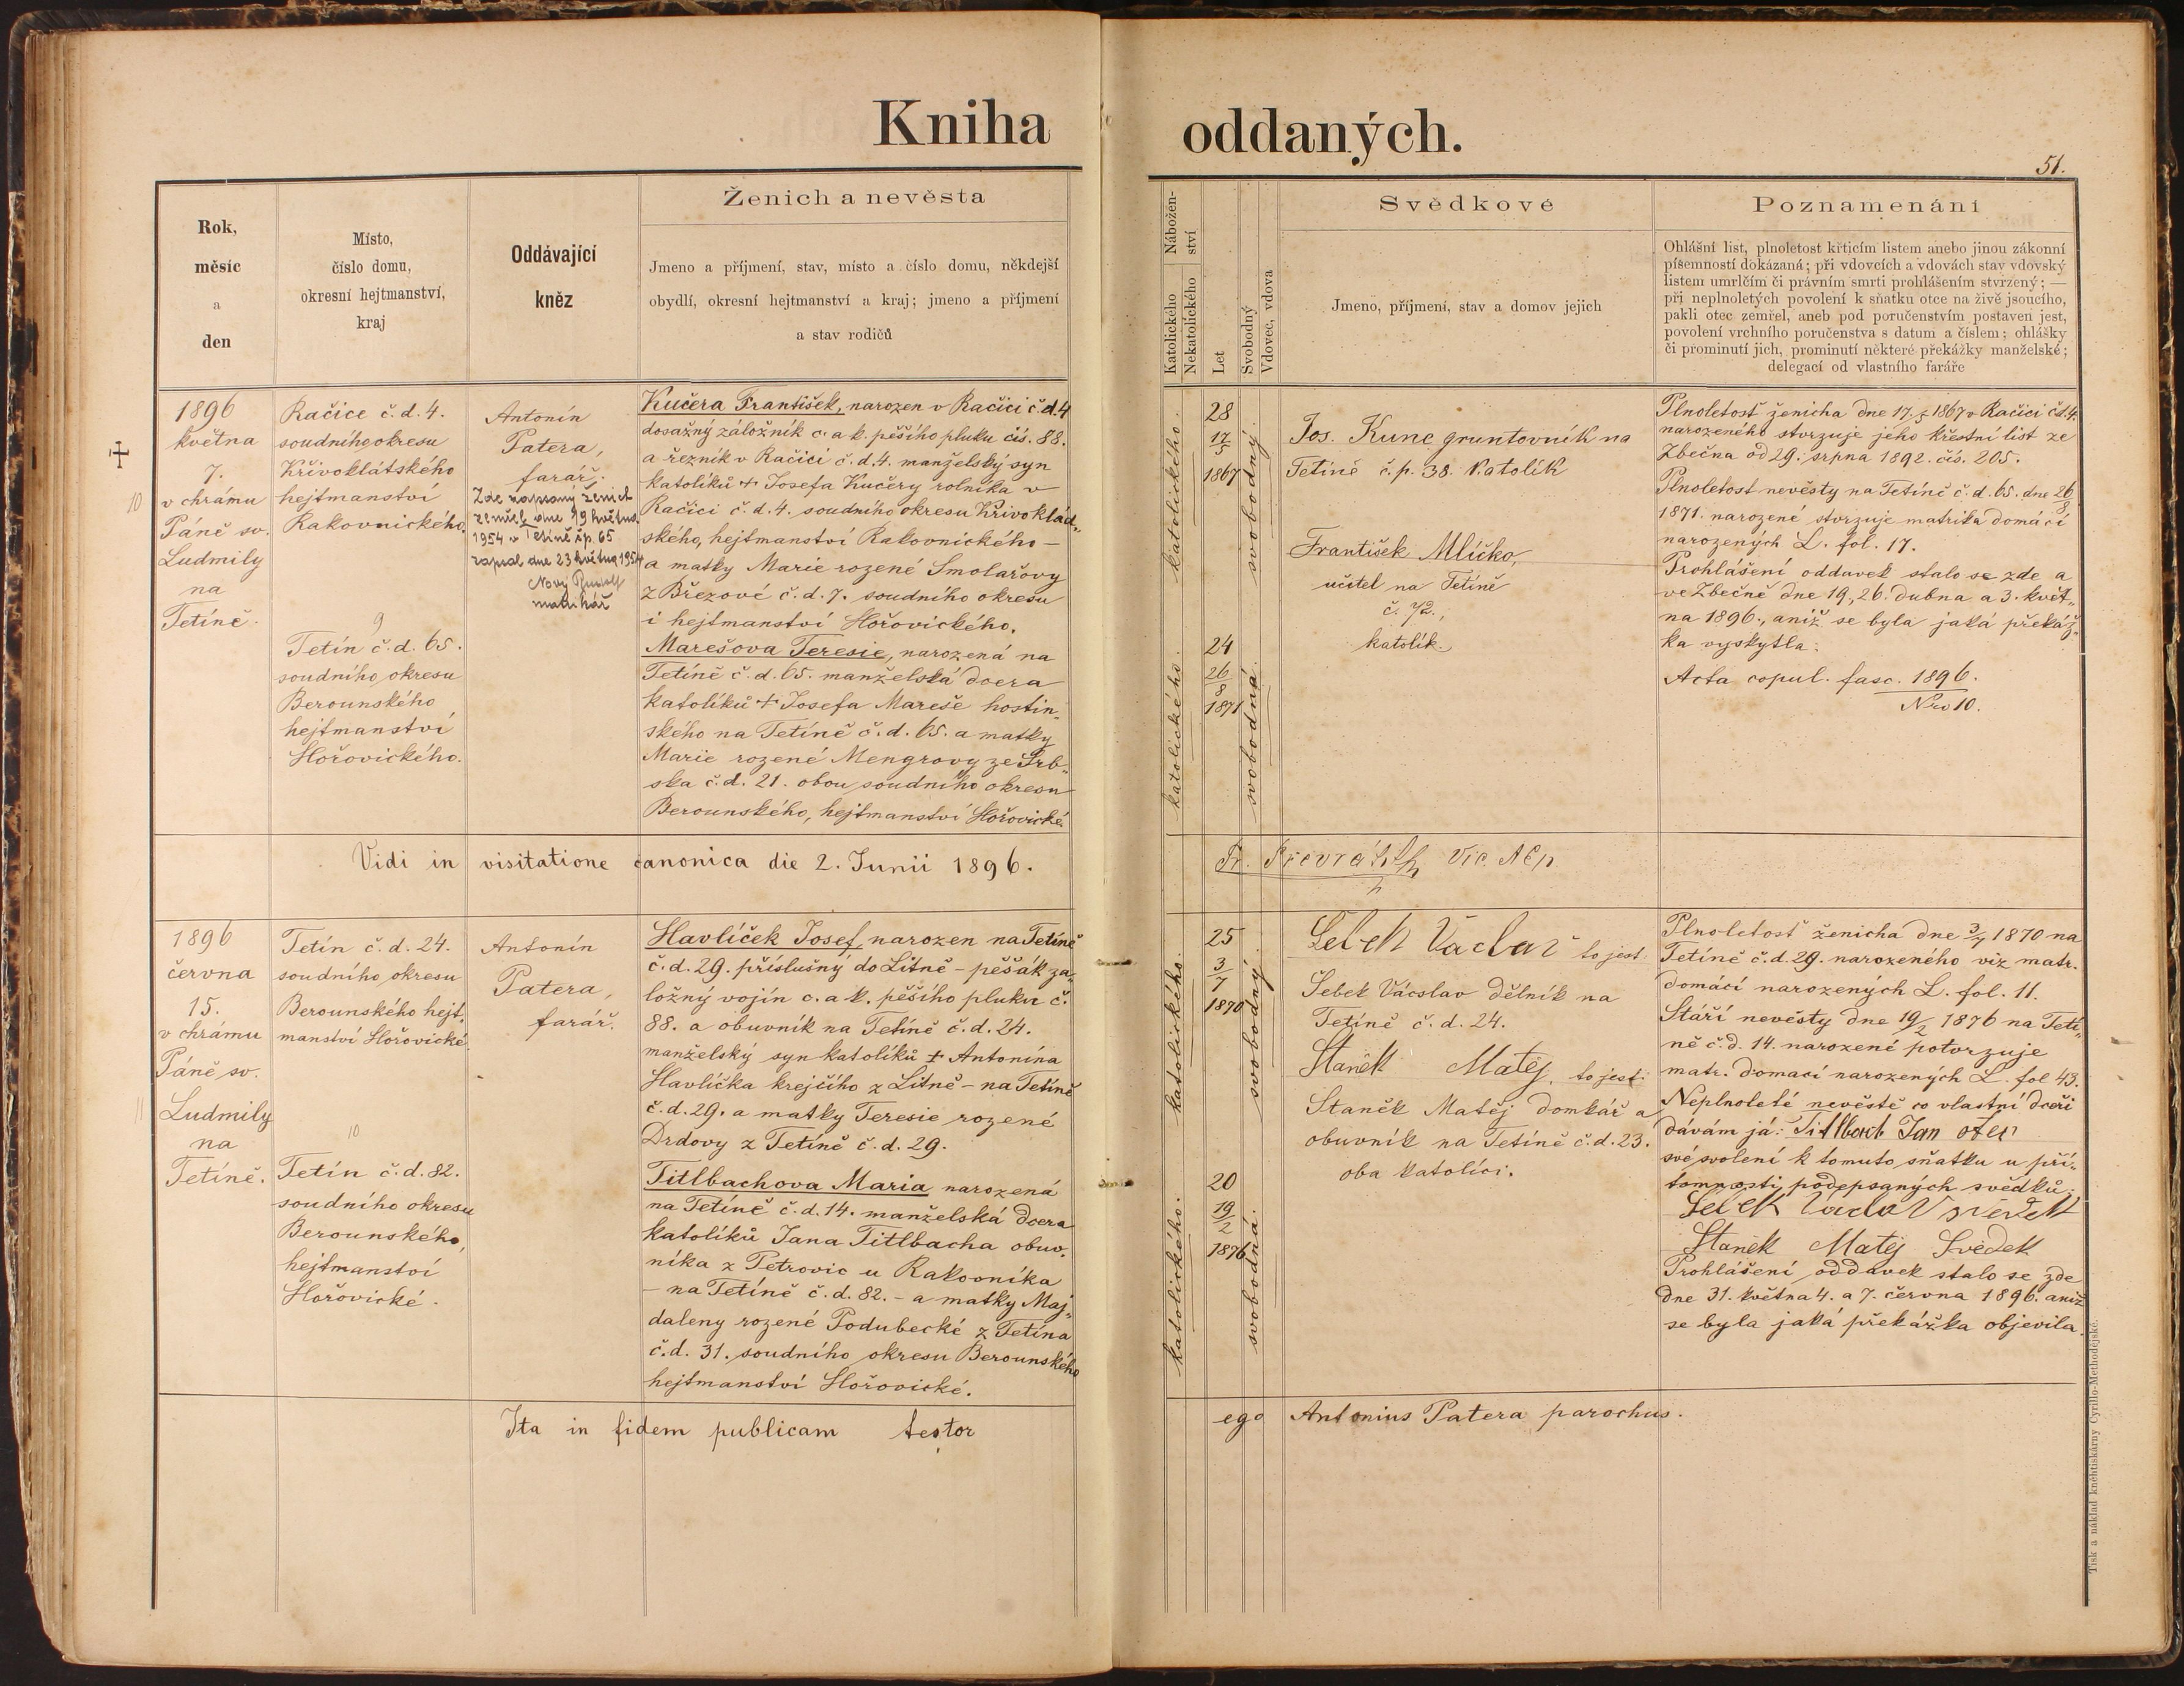 Kniha oddaných.
51.
Rok,
měsíc
a
den
Místo,
číslo domu,
okresní hejtmanství,
kraj
Oddávající
kněz
Ženich a nevěsta
Jmeno a příjmení, stav, místo a číslo domu, někdejší
obydlí, okresní hejtmanství a kraj; jmeno a příjmení
a stav rodičů
Nábožen-
ství
Katolického
Nekatolického
Let
Svobodný
Vdovec, vdova
Svědkové
Jmeno, příjmení, stav a domov jejich
Poznamenání
Ohlášní list, plnoletost křticím listem anebo jinou zákonní
písemností dokázaná; při vdovcích a vdovách stav vdovský
listem umrlčím či právním smrti prohlášením stvrzený; —
při neplnoletých povolení k sňatku otce na živě jsoucího,
pakli otec zemřel, aneb pod poručenstvím postaven jest,
povolení vrchního poručenstva s datum a číslem; ohlášky
či prominutí jich, prominutí některé překážky manželské;
delegací od vlastního faráře
1896
května
7.
10
v chrámu
Páně sv.
Ludmily
na
Tetíně.
Račice č. d. 4.
soudního okresu
Křivoklátského
hejtmanství
Rakovnického.
9
Tetín č. d. 65.
soudního okresu
Berounského
hejtmanství
Hořovického.
Antonín
Patera,
farář.
Zde napsaný ženich
zemřel dne 19 května
1954 v Tetíně čp. 65
zapsal dne 23 května 1954
Nový Rudolf
matrikář
Kučera František, narozen v Račici č. d. 4
dosažný záložník c. a k. pěšího pluku čís. 88.
a řezník v Račici č. d. 4. manželský syn
katolíků + Josefa Kučery rolníka v
Račici č. d. 4. soudního okresu Křivoklát„
ského, hejtmanství Rakovnického —
a matky Marie rozené Smolařovy
z Březové č. d. 7. soudního okresu
i hejtmanství Hořovického.
Marešova Teresie, narozená na
Tetíně č. d. 65. manželská dcera
katolíků + Josefa Mareše hostin„
ského na Tetíně č. d. 65. a matky
Marie rozené Mengrovy ze Srb„
ska č. d. 21. obou soudního okresu
Berounského, hejtmanství Hořovické.
katolického.
28
17
5
1867
svobodný.
katolického.
24
26
8
1871
svobodná.
Jos. Kunc gruntovník na
Tetíně č. p. 38. Katolík
František Mlíčko,
učitel na Tetíně
č. 72.,
katolík.
Plnoletost ženicha dne 17. 5 1867 v Račici č. d. 4.
narozeného stvrzuje jeho křestní list ze
Zbečna od 29. srpna 1892. čís. 205.
Plnoletost nevěsty na Tetíně č. d. 65. dne 26 8
1871. narozené stvrzuje matrika domácí
narozených L. fol. 17.
Prohlášení oddavek stalo se zde a
ve Zbečně dne 19., 26. dubna a 3. květ„
na 1896., aniž se byla jaká překáž„
ka vyskytla.
Acta copul. fasc. 1896.
Nro 10.
Vidi in visitatione canonica die 2. Junii 1896.
Vic.
1896
června
15.
v chrámu
Páně sv.
11
Ludmily
na
Tetíně.
Tetín č. d. 24.
soudního okresu
Berounského hejt„
manství Hořovické.
10
Tetín č. d. 82.
soudního okresu
Berounského,
hejtmanství
Hořovické.
Antonín
Patera,
farář.
Havlíček Josef, narozen na Tetíně
č. d. 29. příslušný do Litně – pěšák za„
ložný vojín c. a k. pěšího pluku č.
88. a obuvník na Tetíně č. d. 24.
manželský syn katolíků + Antonína
Havlíčka krejčího z Litně – na Tetíně
č. d. 29. a matky Teresie rozené
Drdovy z Tetíně č. d. 29.
Titlbachova Maria narozená
na Tetíně č. d. 14. manželská dcera
katolíků Jana Titlbacha obuv„
níka z Petrovic u Rakovníka
– na Tetíně č. d. 82. – a matky Maj„
daleny rozené Podubecké z Tetína
č. d. 31. soudního okresu Berounského
hejtmanství Hořovické.
katolického.
25
3
7
1870
svobodný.
katolického.
20
19
2
1876
svobodná.
Šebek Vaclav to jest:
Šebek Václav dělník na
Tetíně č. d. 24.
Staněk Matěj, to jest:
Staněk Matěj domkář a
obuvník na Tetíně č. d. 23.
oba katolíci.
Plnoletost ženicha dne 3/7 1870 na
Tetíně č. d. 29. narozeného viz matr.
domácí narozených L. fol. 11.
Stáří nevěsty dne 19/2 1876 na Tetí„
ně č. d. 14. narozené potvrzuje
matr. domací narozených L. fol 43.
Neplnoleté nevěstě co vlastní dceři
dávám já: Titlbach Jan otec
své svolení k tomuto sňatku u pří„
tomnosti podepsaných svědků.
Šebek Vaclav svědek
Staněk Matěj Svědek
Prohlášení oddavek stalo se zde
dne 31. května 4. a 7. června 1896. aniž
se byla jaká překážka objevila.
Ita in fidem publicam testor ego Antonius Patera parochus.
Tisk a náklad knihtiskárny Cyrillo-Methodějské.